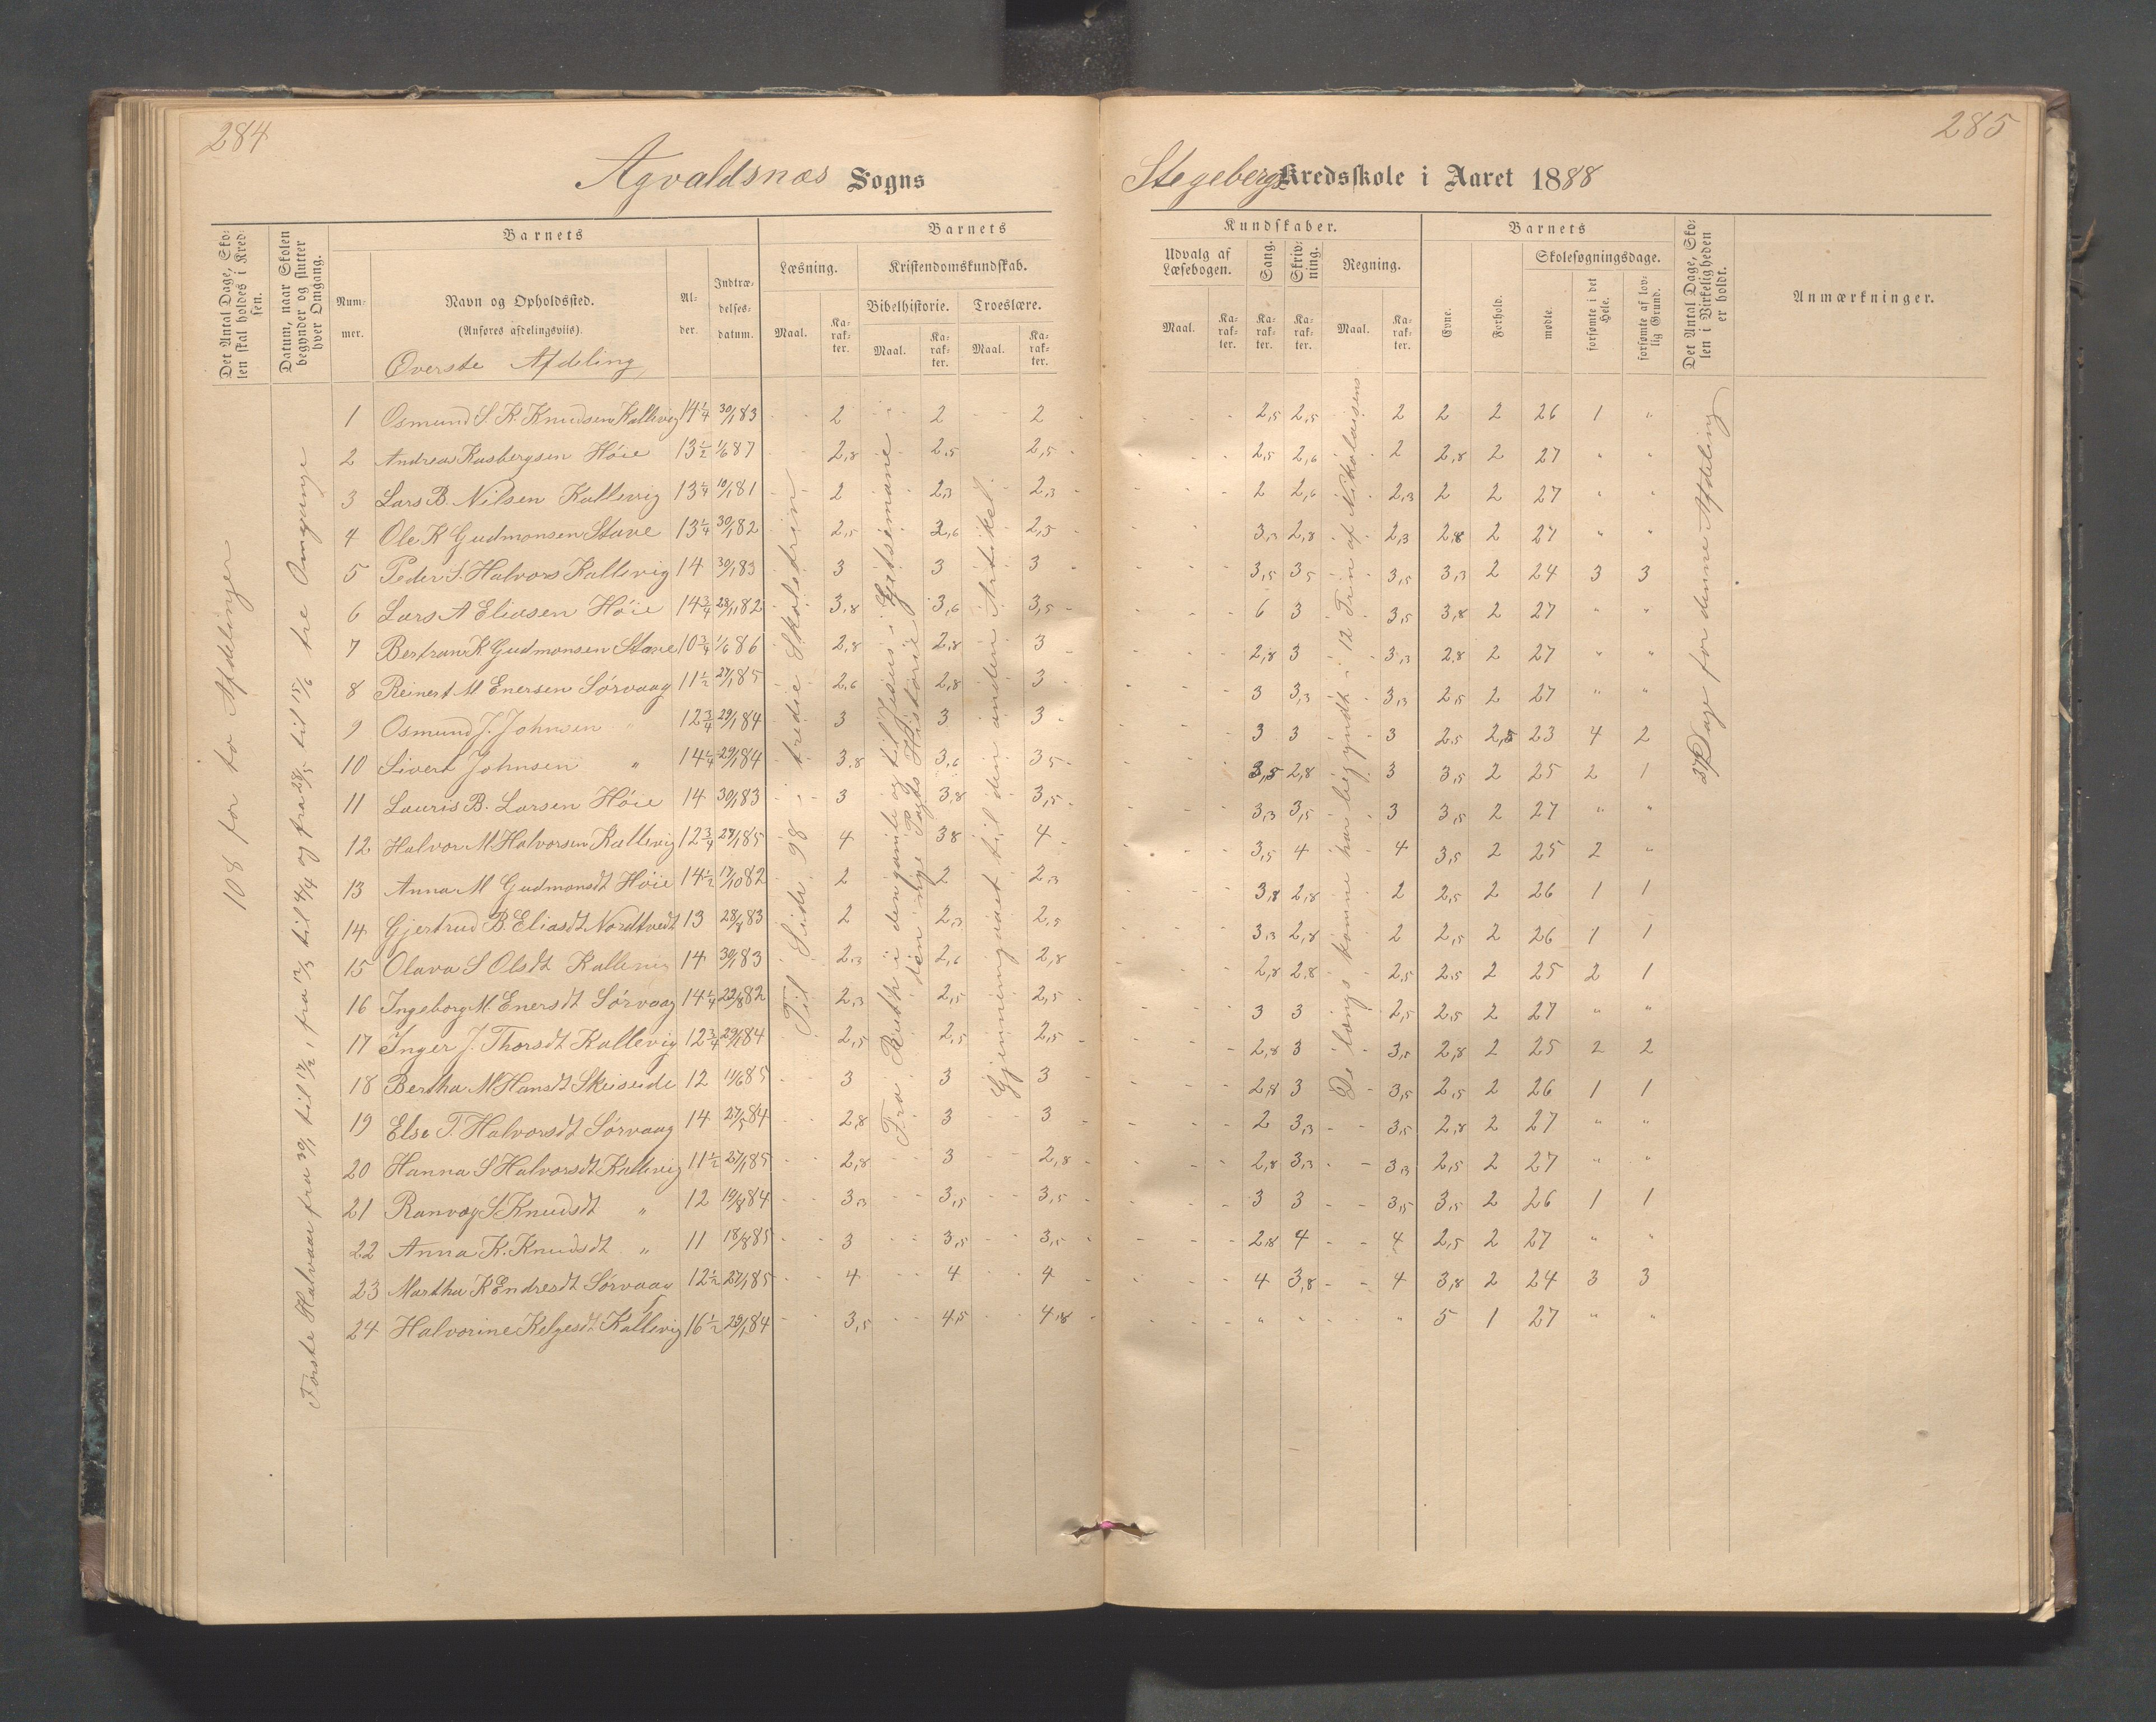 284
Agvaldsnæs Sogns
Det Antal Dage, Skolen skal holdes i Kredsen.
Datum, naar Skolen begynder og slutter hver Omgang.
Barnets
Nummer.
Navn og Opholdssted.
(Anføres afdelingsviis).
Alder.
Indtrædelsesdatum.
Barnets
Læsning.
Kristendomskundskab.
Bibelhistorie.
Troeslære.
Maal.
Karakter.
Maal.
Karakter.
Maal.
Karakter.
Øverste Afdeling,
108 for to Afdelinger
Første Halvaar fra 30/1 til 17/2, fra 12/3 til 4/4 og fra 28/5 til 15/6 tre Omgange
1 Osmund S. K. Knudsen Kallevig 14 1/4 30/1 83 2 2 2
2 Andreas Rasbergsen Høie 13 1/2 1/6 87 2,8 2,5 2,5
3 Lars B. Nilsen Kallevig 13 1/4 10/1 81 2 2,3 2,3
4 Ole K Gudmonsen Stave 13 1/4 30/1 82 2,5 2,6 2,5
5 Peder S. Halvors Kallevig 14 30/1 83 3 3 3
6 Lars A Eliasen Høie 14 3/4 28/1 82 3,8 3,6 3,5
7 Bertran K Gudmonsen Stave 10 3/4 1/6 86 2,8 2,8 3
8 Reinert M Enersen Sørvaag 11 1/2 27/1 85 2,6 2,8 3
9 Osmund J. Johnsen " 12 3/4 29/1 84 3 3 3
10 Sivert Johnsen " 14 1/4 29/1 84 3,8 3,6 3,5
11 Lauris B. Larsen Høie 14 30/1 83 3 3,8 3,5
12 Halvor M Halvorsen Kallevig 12 3/4 27/1 85 4 3,8 4
13 Anna M Gudmonsdt Høie 14 1/2 17/10 82 2 2 2,3
14 Gjertrud B. Eliasdt Nordtvedt 13 28/8 83 2 2,3 2,5
15 Olava S Olsdt Kallevig 14 30/1 83 2,3 2,6 2,8
16 Ingeborg M. Enersdt Sørvaag 14 1/4 22/8 82 2,3 2,5 2,5
17 Inger J. Thorsdt Kallevig 12 3/4 29/1 84 2,5 2,5 2,5
18 Bertha M Hansdt Skeiseide 12 11/6 85 3 3 3
19 Else T. Halvorsdt Sørvaag 14 27/5 84 2,8 3 3
20 Hanna S Halvorsdt Kallevig 11 1/2 27/1 85 2,8 3 2,8
21 Ranvog S Knudsdt " 12 19/8 84 3,3 3,5 3,5
22 Anna K. Knudsdt " 11 18/8 85 3 3,5 3,5
23 Martha K Endresdt Sørvaag 12 1/2 27/1 85 4 4 4
24 Halvorine Helgesdt Kallevig 16 1/2 29/1 84 3,5 4,5 4,8
Til Side 98 i tredie Skoletrin
Fra Ruth i den gamle og til Jesus i Getsemane i
den nye Pagts Historie
Gjenningaaet til den anden Artikel.
285
Stegebergs Kredsskole i Aaret 1888
Kundskaber.
Udvalg af Læsebogen.
Sang.
Skrivning.
Regning.
Maal.
Karakter.
Karakter.
Karakter.
Maal.
Karakter.
Barnets
Evne.
Forhold.
Skolesøgningsdage.
mødte.
forsømte i det Hele.
forsømte af lovlig Grund.
Det Antal Dage, Skolen i Virkeligheden er holdt.
Anmærkninger.
2,5 2,5 2 2 2 26 1 "
2,5 2,6 2 2,8 2 27 " "
2 2,6 2,3 2 2 27 " "
3,3 2,8 2,3 2,8 2 27 " "
3,5 3,5 3,5 3,3 2 24 3 3
6 3 3,5 3,8 2 27 " "
2,8 3 3,3 2,8 2 27 " "
3 3,3 3,3 2,5 2 27 " "
3 3 3 2,5 2,5 23 4 2
3,5 2,8 3 3,5 2 25 2 1
3,3 3,5 3 3,5 2 27 " "
3,5 4 4 3,5 2 25 2 "
3,8 2,8 2 2,5 2 26 1 1
3,3 2,8 2 2,5 2 26 1 1
2,8 2,8 2,5 2,5 2 25 2 1
3 3 2,5 2,5 2 27 " "
2,8 3 3,5 2,8 2 25 2 2
2,8 3 3,5 2,5 2 26 1 1
2 3,3 3,5 2,8 2 27 " "
2,8 3,3 3,3 2,5 2 27 " "
3 3 3,5 3,5 2 26 1 1
2,8 4 4 2,5 2 27 " "
4 3,8 4 3,8 2 24 3 3
" " " 5 1 27 " "
De længs komne har begyndt i 12 Trin af Nikolaisens
Dage for denne Afdeling